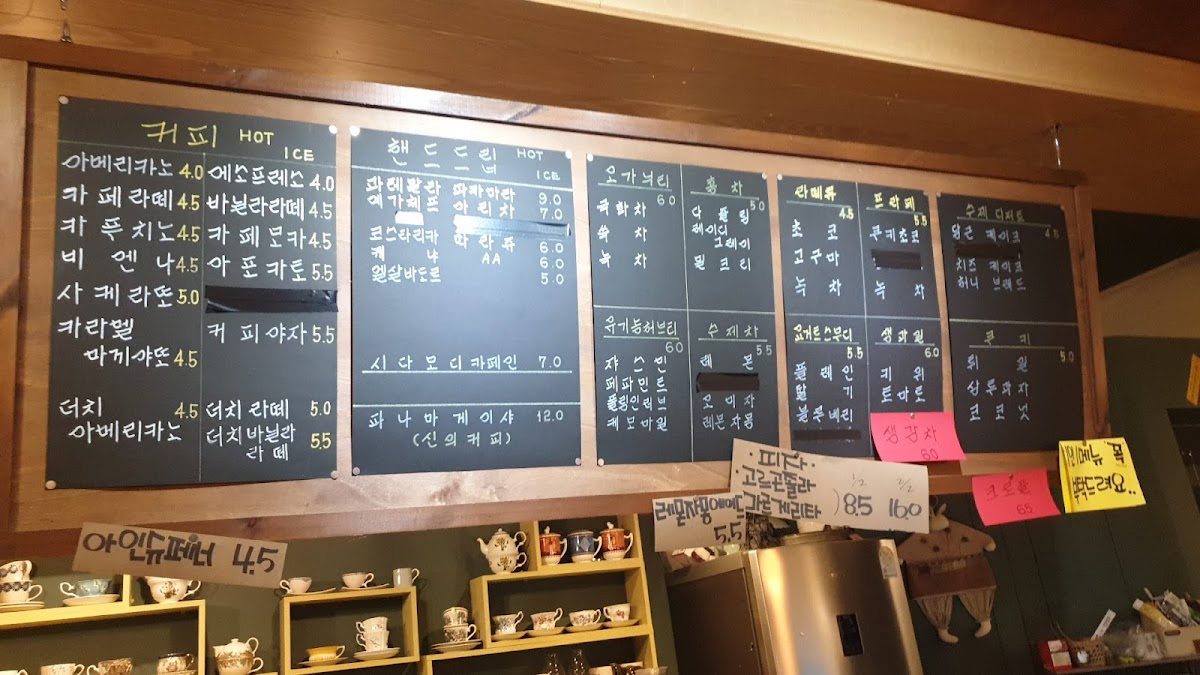 커피 HOT
ICE
아메리카노 4.0
카페라떼 4.5
카푸치노 4.5
비엔나 4.5
사케라또 5.0
카라멜
마끼야또 4.5
더치 4.5
아메리카노
에소프레소 4.0
바닐라라떼 4.5
카페모카 4.5
아포카토 5.5
커피야자 5.5
더치라떼 5.0
더치바닐라
라떼 5.5
핸드드립 HOT
ICE
파마마란 9.0
예가체프 아리차 7.0
코스타리카 따라쥬 6.0
케냐 AA 6.0
엘살바도르 5.0
시다모디카페인 7.0
파나마게이샤 12.0
(신의커피)
오가닉티
6.0
국화차
쑥차
녹차
홍차
5.0
다즐링
레이디
그레이
밀크티
유기농허브티
6.0
쟈스민
페파민트
캐모마일
수제차
5.5
레몬
오미자
레몬자몽
라떼류
4.5
초코
고구마
녹차
프라페
5.5
쿠키초코
녹차
요거트스무디
5.5
플레인
딸기
블루베리
생과일
6.0
키위
토마토
수제디저트
당근케이크 4.5
치즈케이크
허니브레드
쿠키
5.0
상투과자
코코넛
생강차
6.0
크로플
6.5
피자
고르곤졸라
마르게리타
1/2
2/2
8.5 16.0
레몬자몽에이드
5.5
아인슈페너 4.5